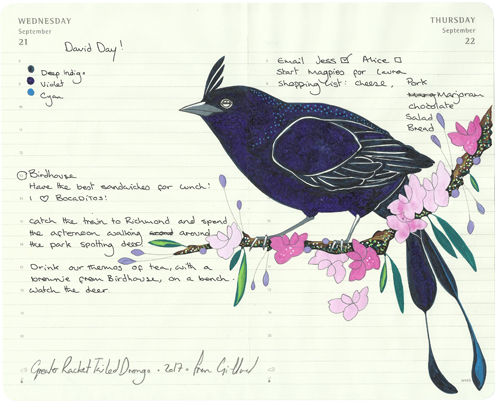 WEDNESDAY
September
21
David Day!
Deep Indigo
Violet
Cyan
Birdhouse
Have the best sandwiches for lunch!
I ♡ BOCADITOS!
catch the train to Richmond and spend
the afternoon walking around
the park spotting deer
Drink our thermos of tea, with a
brownie from Birdhouse, on a bench.
Watch the deer
Greater Racket Tailed Drongo · 2017 ·
THURSDAY
September
22
Email Jess ☑ Alice ☐
Start Magpies for Lauren
Shopping list: cheese,
Pork
Marjoram
chocolate
Salad
Bread